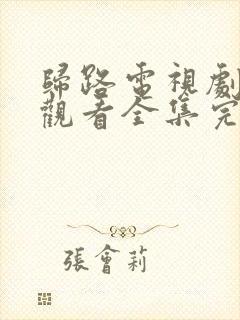 歸路電視劇
觀看全集完
張會莉